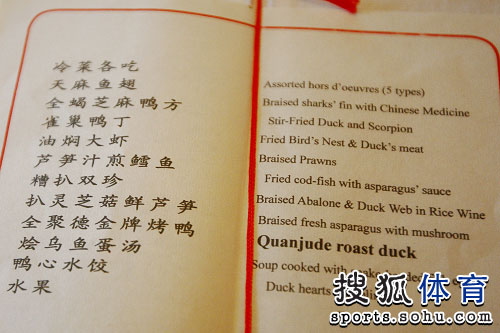 冷菜各吃
天麻鱼翅
全蝎芝麻鸭方
雀巢鸭丁
油焖大虾
芦笋汁煎鳕鱼
糟扒双珍
扒灵芝菇鲜芦笋
全聚德金牌烤鸭
烩乌鱼蛋汤
鸭心水饺
水果
Assorted hors d'oeuvres (5 types)
Braised sharks' fin with Chinese Medicine
Stir-Fried Duck and Scorpion
Fried Bird's Nest & Duck's meat
Braised Prawns
Fried cod-fish with asparagus' sauce
Braised Abalone & Duck Web in Rice Wine
Braised fresh asparagus with mushroom
Quanjude roast duck
Soup cooked with
Duck hearts
搜狐体育
sports.sohu.com